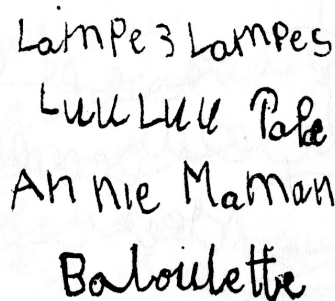 Lampe 3 Lampes
Luu Luu Papa
Annie Maman
Baloulette